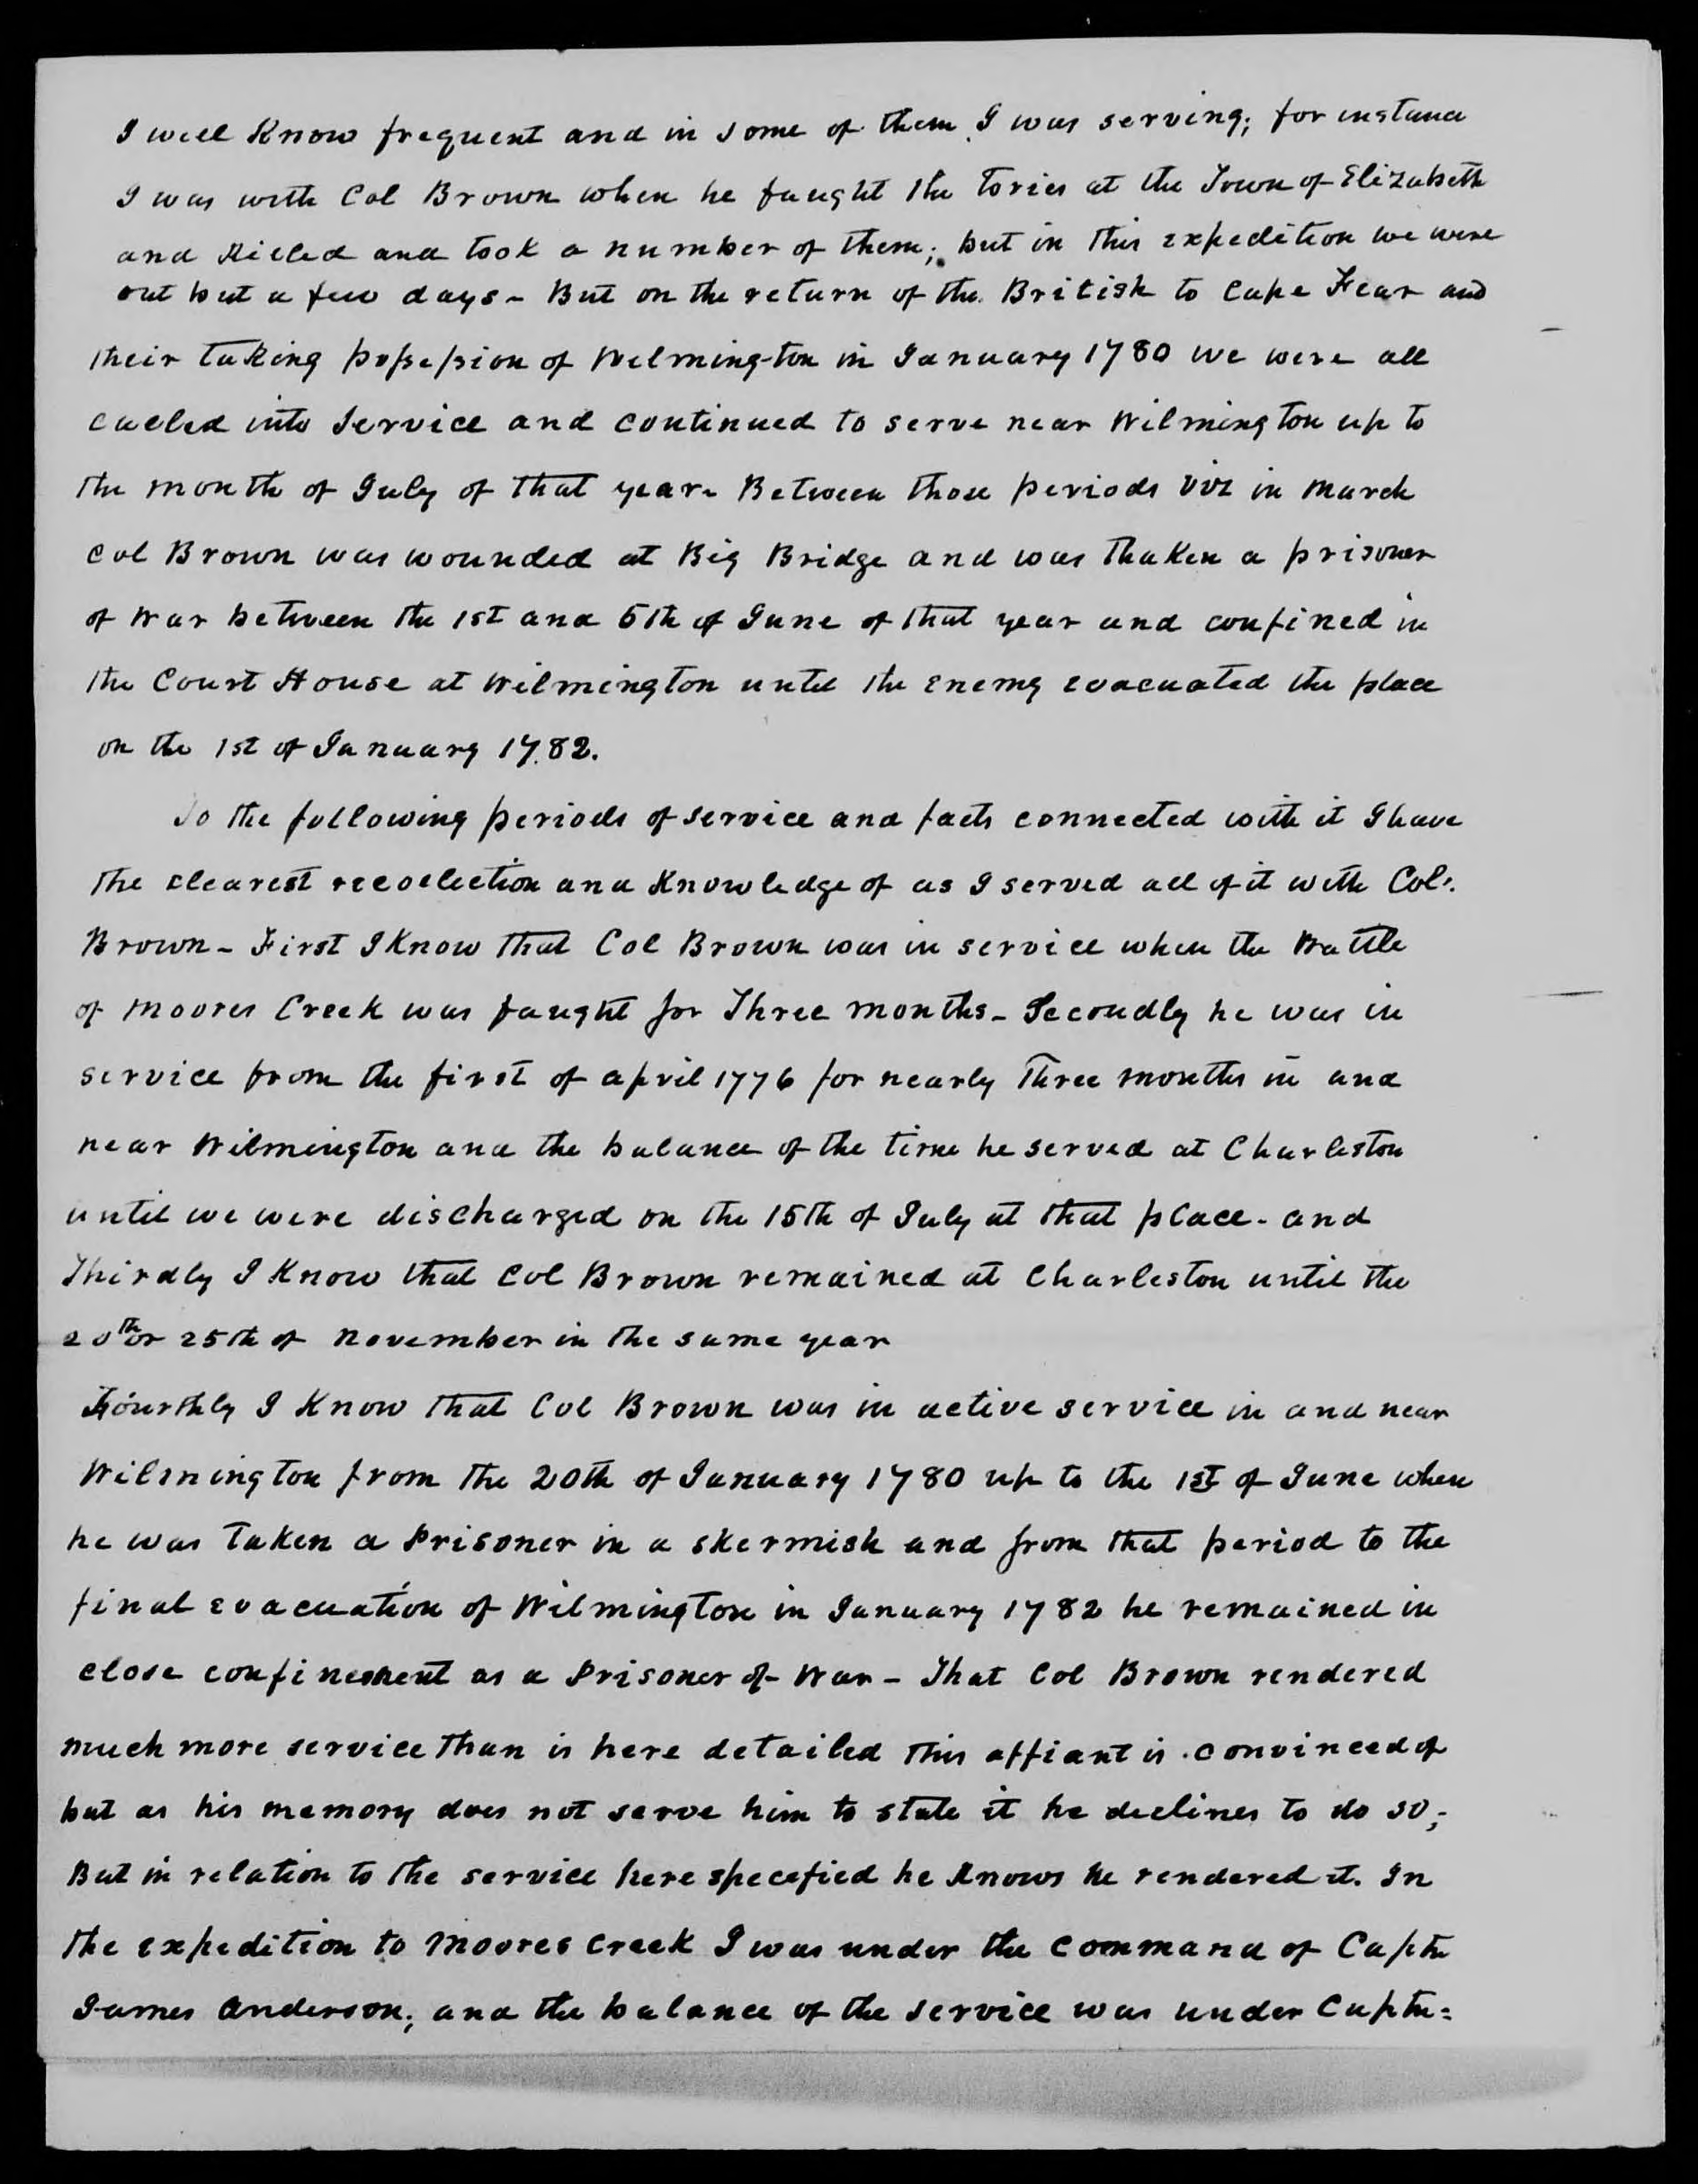 I well Know frequent and in some of them I was serving; for instance
I was with Col Brown when he faught the Tories at the Town of Elizabeth
and Killed and took a number of them; but in this expedition we were
out but a few days - But on the return of the British to Cape Fear and
their taking possession of Wilmington in January 1780 we were all
called into Service and continued to serve near Wilmington up to
the month of July of that year - Between those periods viz in March
Col Brown was wounded at Big Bridge and was Thaken a prisoner
of War between the 1st and 5th of June of that year and confined in
the Court House at Wilmington until the Enemy evacuated the place
on the 1st of January 1782.
To the following periods of service and facts connected with it I have
the clearest recollection and Knowledge of as I served all of it with Col.
Brown - First I Know that Col Brown was in service when the Battle
of Moores Creek was faught for Three months - Secondly he was in
service from the first of april 1776 for nearly Three months in and
near Wilmington and the balance of the time he served at Charleston
until we were discharged on the 15th of July at that place - and
Thirdly I Know that Col Brown remained at Charleston until the
20th or 25th of November in the same year
Fourthly I Know that Col Brown was in active service in and near
Wilmington from the 20th of January 1780 up to the 1st of June when
he was Taken a Prisoner in a skermish and from that period to the
final evacuation of Wilmington in January 1782 he remained in
close confinement as a Prisoner of War - That Col Brown rendered
much more service than is here detailed this affiant is convinced of
but as his memory does not serve him to state it he declines to do so;
But in relation to the service here specefied he Knows he rendered it. In
the expedition to Moores Creek I was under the command of Captn
James Anderson; and the balance of the service was under Captn=